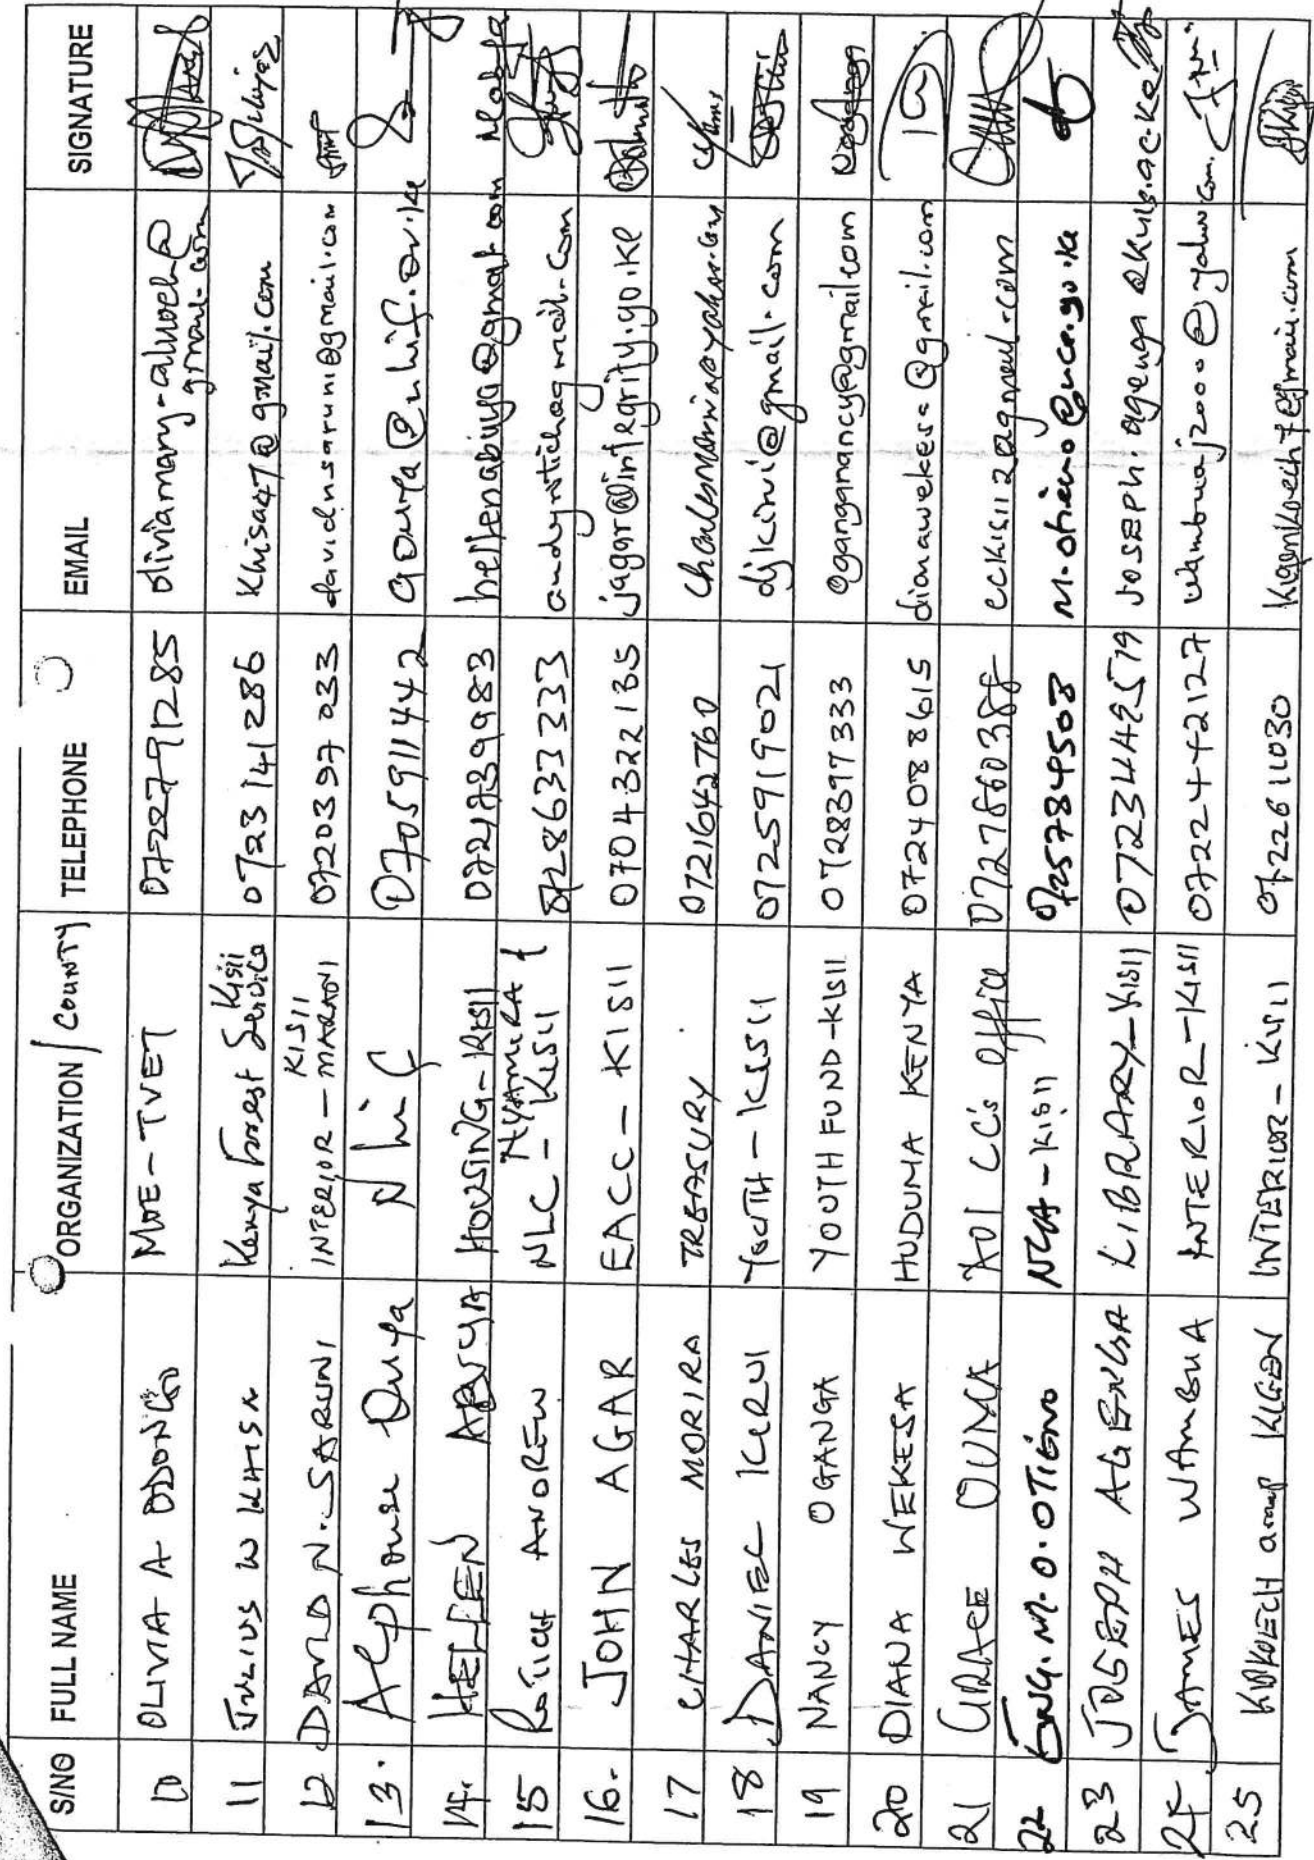 S/NO FULL NAME ORGANIZATION / COUNTY TELEPHONE EMAIL SIGNATURE
10 OLIVIA A ODONGO MOE - TVET 0722791285 oliviamary-aluoch@
gmail.com
11 JULIUS W KHISA Kenya Forest Service Kisii 0723141286 Khisa47@gmail.com
12 DAVID N. SARUNI INTERIOR - MARANI KISII 0720397033 davidnsaruni@gmail.com
13. Alphonse Ouya Nhif 0705911442 aouya@nhif.or.ke
14. HELLEN ABUYA HOUSING - KISII 0721939983 hellenabuya@gmail.com
15 ANDREW NLC - NYAMIRA & KISII 0728633333
16. JOHN AGAR EACC - KISII 0704322135 jagar@integrity.go.ke
17 CHARLES MORIRA TREASURY 0721642760
18 DANIEL KIRUI YOUTH - KISII 0725919021 djkirui@gmail.com
19 NANCY OGANGA YOUTH FUND - KISII 0728397333 ogangancy@gmail.com
20 DIANA WEKESA HUDUMA KENYA 0724088615 dianawekesa@gmail.com
21 GRACE OUMA CC's Office cckisii2@gmail.com
22 ENG. M. O. OTIENO NCA - KISII 0725784508 m.otieno@nca.go.ke
23 JOSEPH AGENGA LIBRARY - KISII joseph.agenga@knls.ac.ke
24 JAMES WAMBUA INTERIOR - KISII 0722442127 wambuaj2000@yahoo.com
25 KIPKOECH arap KIGEN INTERIOR - KISII 0722611030